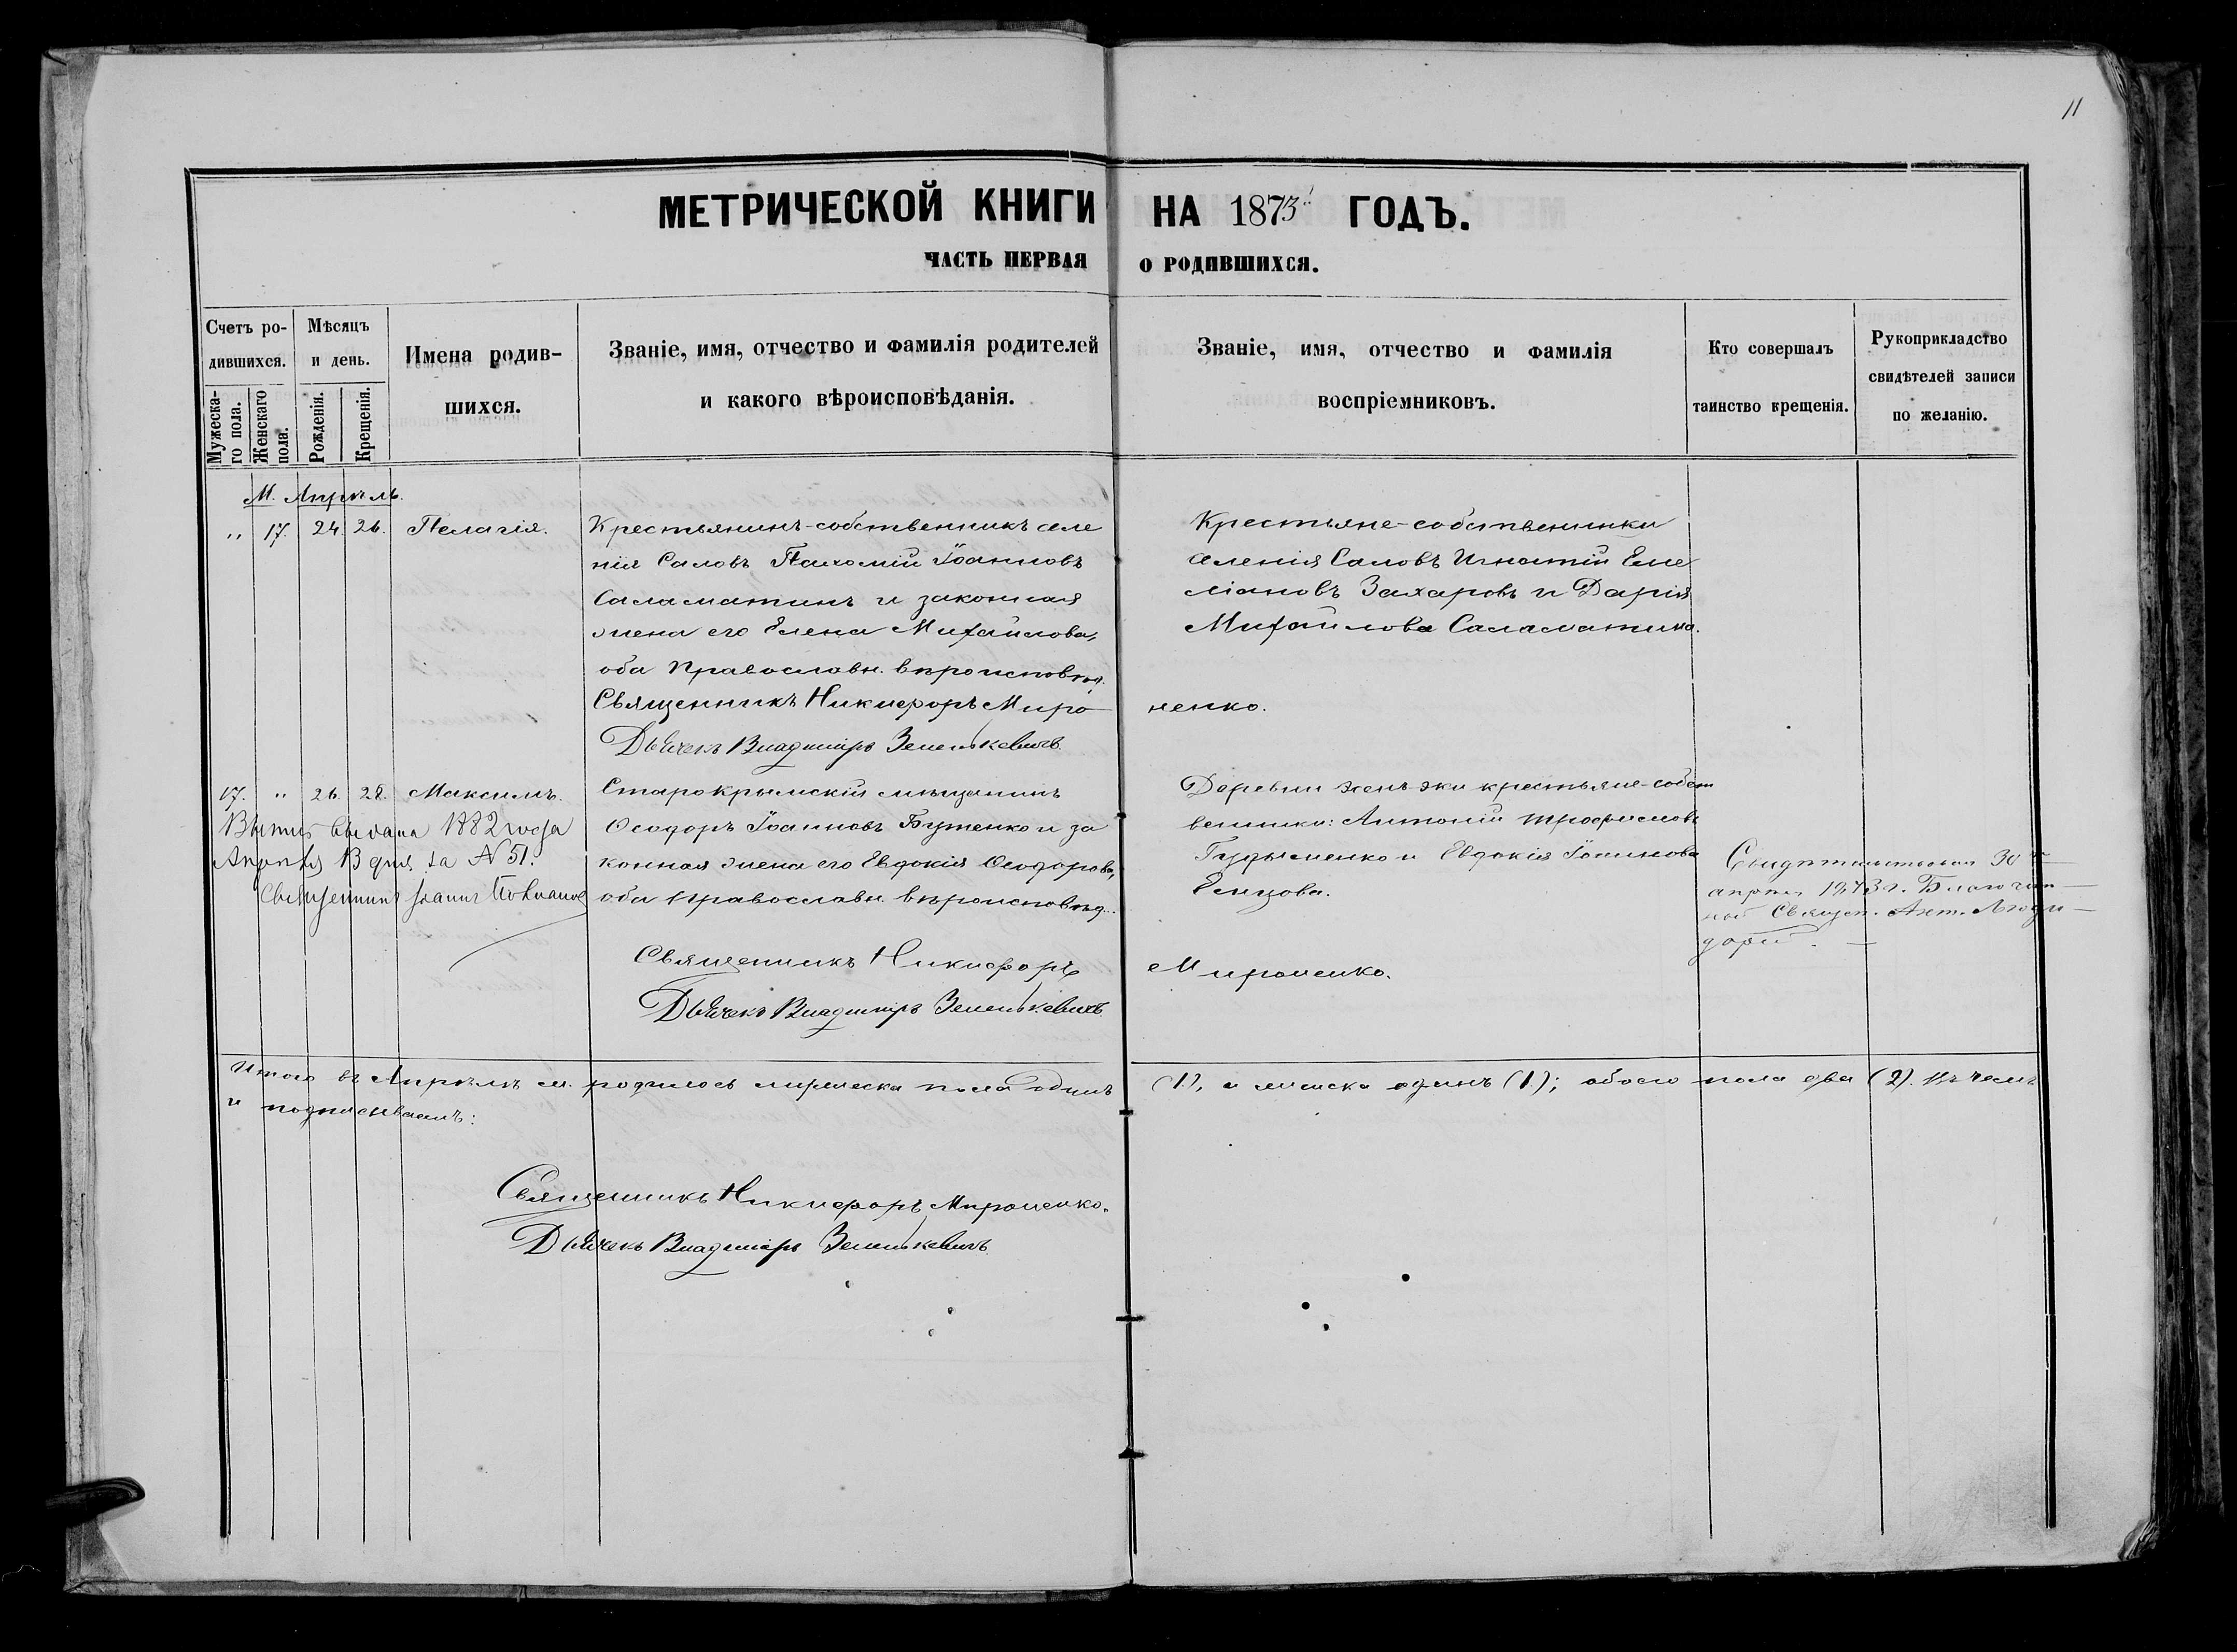 11
МЕТРИЧЕСКОЙ КНИГИ НА 1873 ГОДЪ.
ЧАСТЬ ПЕРВАЯ О РОДИВШИХСЯ.
Счетъ ро-
дившихся.
Мужеска-
го пола.
Женскаго
пола.
Мѣсяцъ
и день.
Рожденія.
Крещенія.
Имена родив-
шихся.
Званіе, имя, отчество и фамилія родителей
и какого вѣроисповѣданія.
Званіе, имя, отчество и фамилія
воспріемниковъ.
Кто совершалъ
таинство крещенія.
Рукоприкладство
свидѣтелей записи
по желанію.
М. Апрѣль.
„ 17. 24. 26. Пелагія.
Крестьянинъ-собственникъ селе
нія Саловъ Пахомій Іоанновъ
Саламатинъ и законная
жена его Елена Михайлова,
оба православн. вѣроисповѣд.
Священникъ Никифоръ Миро
ненко.
Дьячекъ Владиміръ Зеленькевичъ.
Крестьяне-собственники
селенія Саловъ Игнатій Еме
ліановъ Захаровъ и Дарія
Михайлова Саламатина.
17. „ 26. 28. Максимъ.
Выпись выдана 1882 года
Апрѣля 13 дня за № 51.
Священникъ Іоаннъ
Старокрымскій мѣщанинъ
Ѳеодоръ Іоанновъ Бутенко и за
конная жена его Евдокія Ѳеодорова,
оба православн. вѣроисповѣд.
Священникъ Никифоръ
Мироненко.
Дьячекъ Владиміръ Зеленькевичъ.
Деревни крестьяне-собст
венники: Антоній Трофимовъ
Гудыменко и Евдокія Іоаннова
Емцова.
Свидѣтельствовалъ 30
апрѣля 1873 г. Благочин
ный Священ. Ант.
Итого въ Апрѣлѣ м. родилось мужеска пола одинъ (1), а женска одинъ (1); обоего пола два (2). Въ чемъ
и подписываемъ:
Священникъ Никифоръ Мироненко.
Дьячекъ Владиміръ Зеленькевичъ.